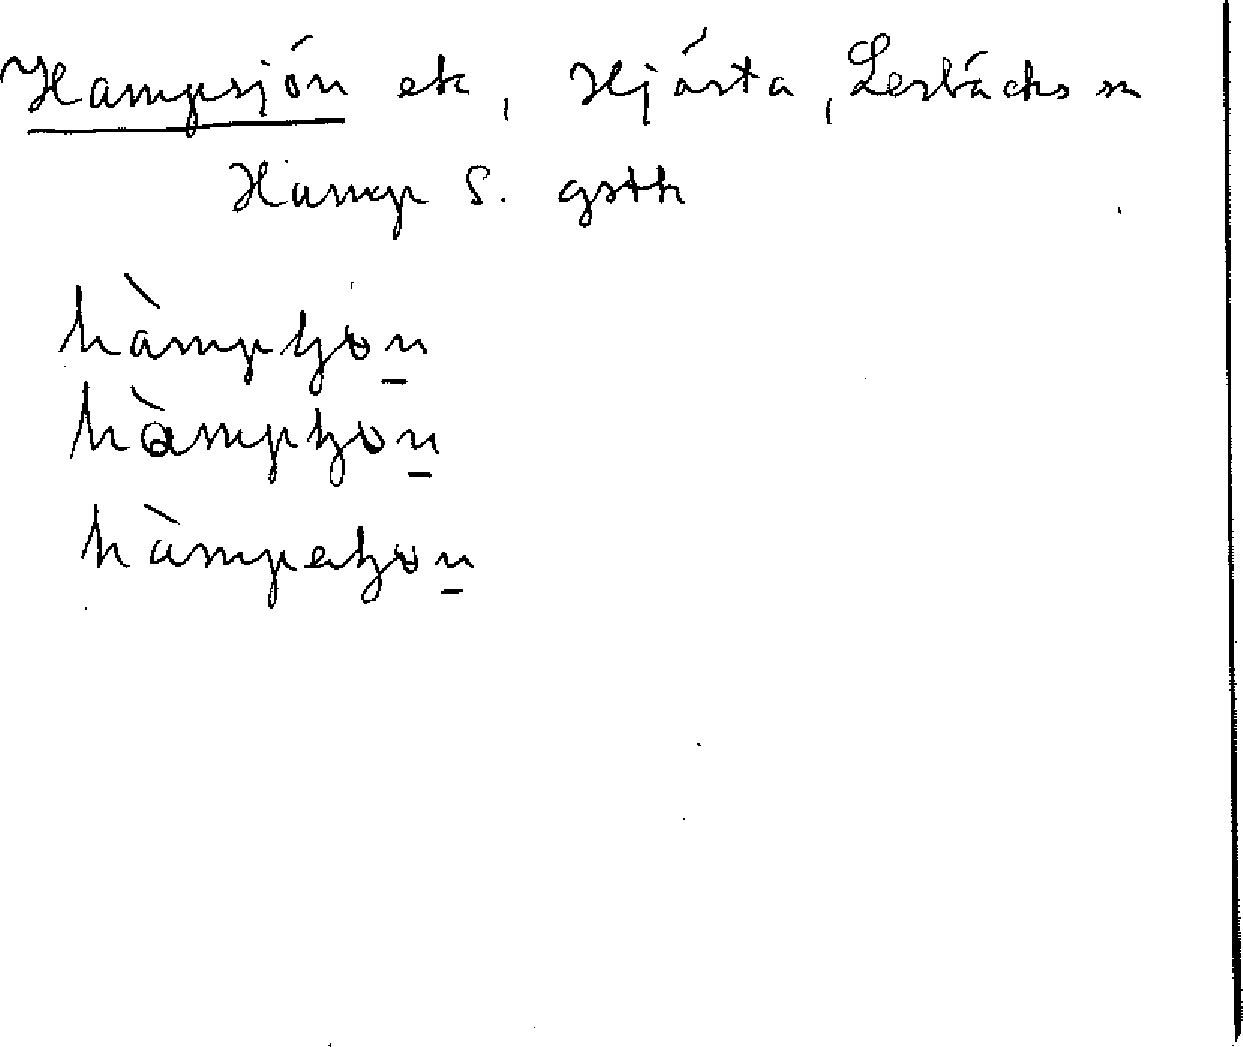 Hampsjön ek, Hjärta, Lerbäcks sn
Hamp S. gstk
hàmpꞎon
hàmpꞎon
hàmpeꞎon